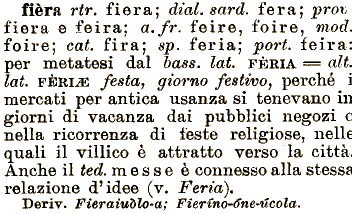 fièra rtr. fiera; dial. sard. fera; prov
fiera e feira; a.fr. feire, foire, mod.
foire; cat. fira; sp. feria; port. feira:
per metatesi dal bass. lat. FÈRIA = alt.
lat. FÈRIÆ festa, giorno festivo, perché i
mercati per antica usanza si tenevano in
giorni di vacanza dai pubblici negozi e
nella ricorrenza di feste religiose, nelle
quali il villico è attratto verso la città.
Anche il ted. messe è connesso alla stessa
relazione d'idee (v. Feria).
Deriv. Fieraiuòlo-a; Fierino-óne-úcola.